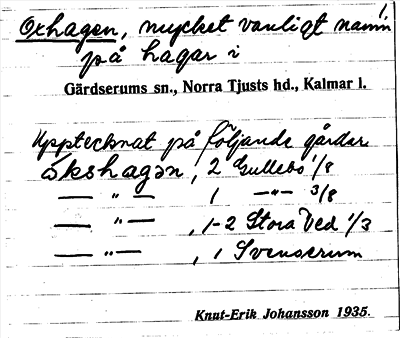 1.
Oxhagen, mycket vanligt namn
på hagar i
Gärdserums sn., Norra Tjusts hd., Kalmar l.
Upptecknat på följande gårdar
ɷ̀kshagən, 2 Gullebo 1/8
— " — 1 —"— 3/8
— " —, 1-2 Stora Ved 1/3
— " —, 1 Svenserum
Knut-Erik Johansson 1935.